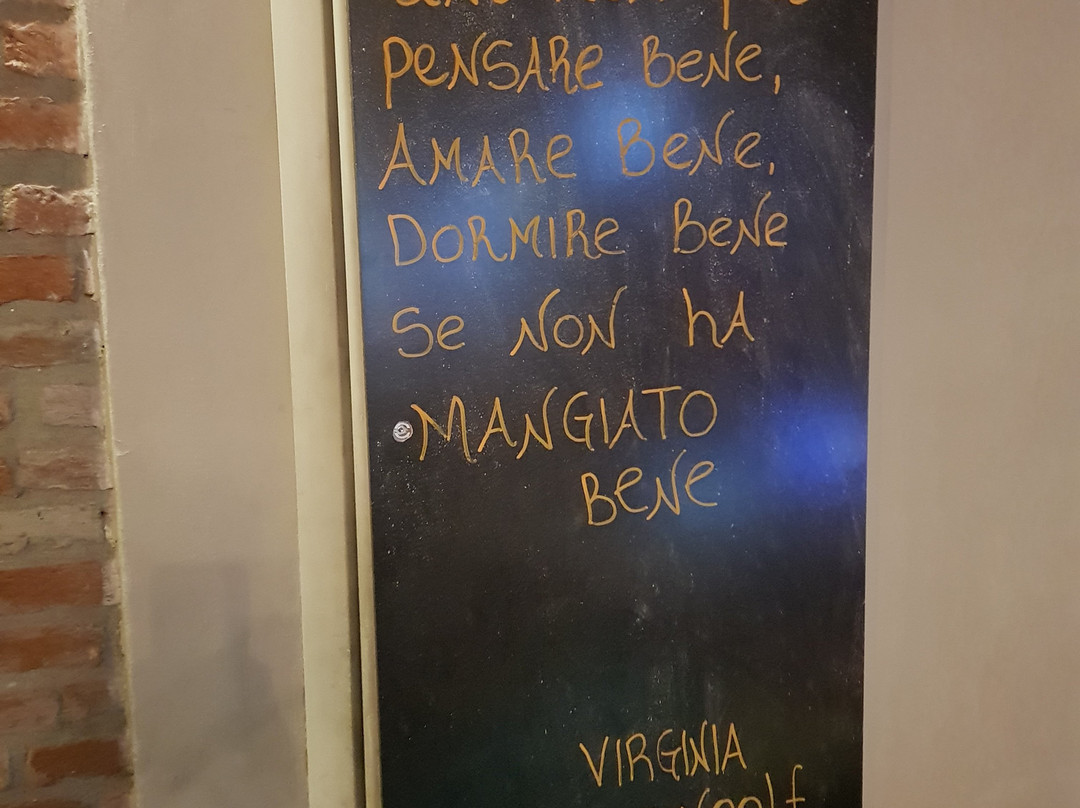 PENSARE BENE,
AMARE BENE,
DORMIRE BENE
SE NON HA
MANGIATO
BENE
VIRGINIA